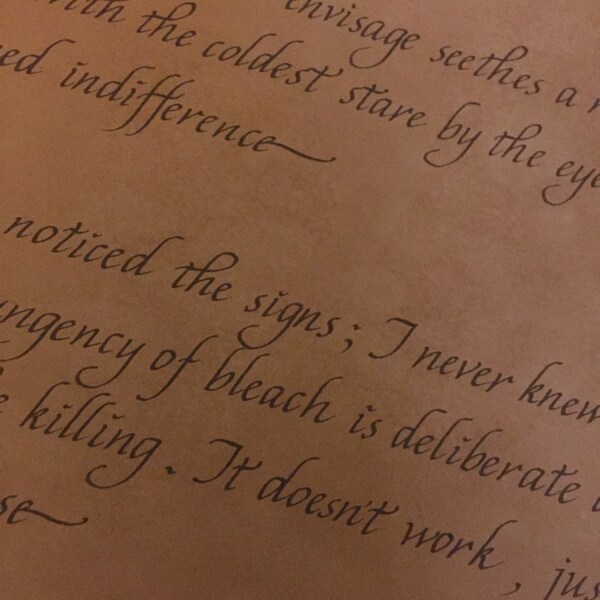 envisage seethes a
with the coldest stare by the eye
indifference
noticed the signs; I never knew
of bleach is deliberate
killing. It doesn't work, jus
se